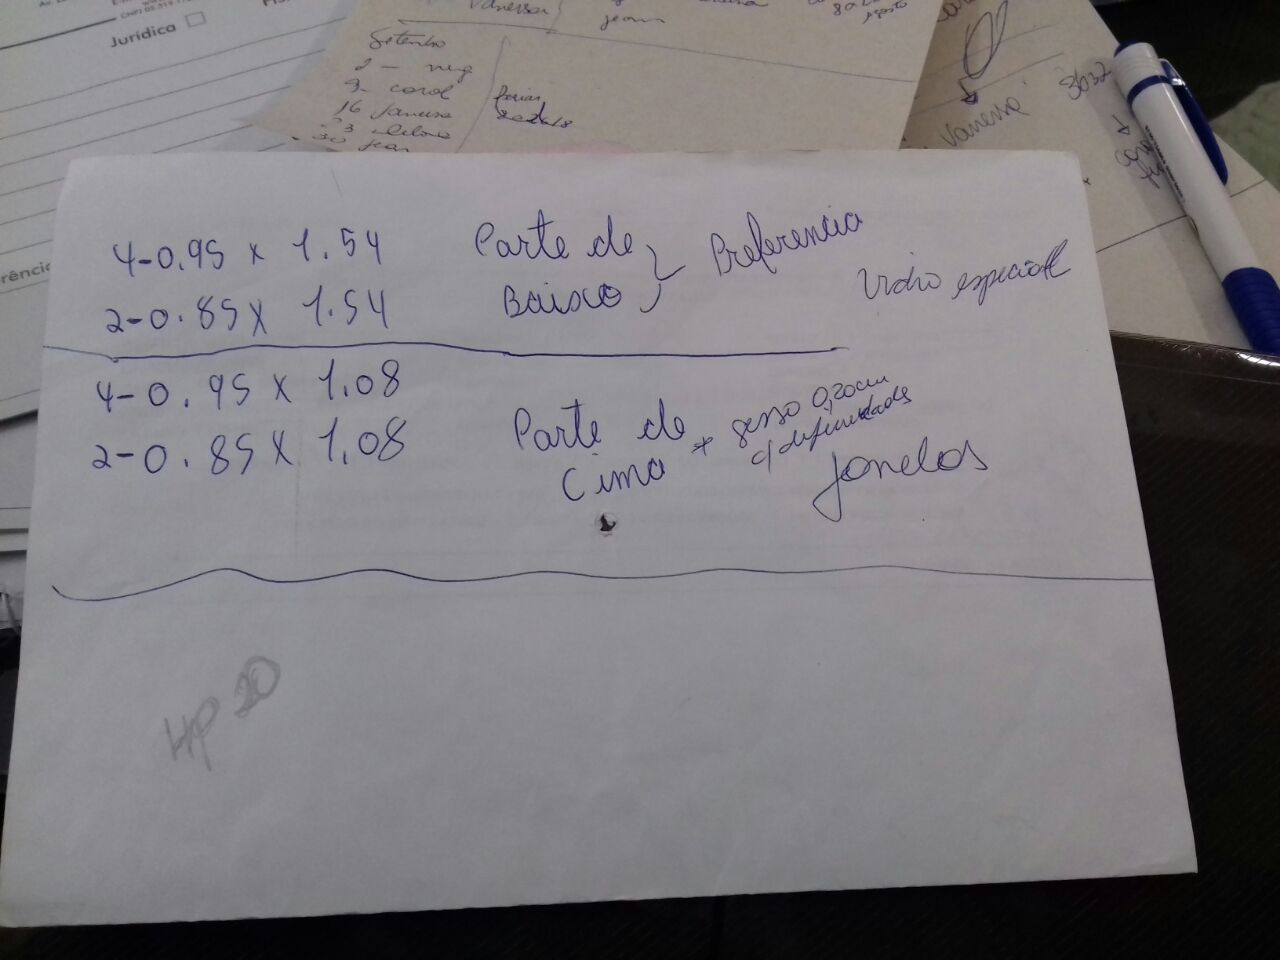 Jurídica
Vanessa
Jean
Setembro
2 - neg
9 - carol
16 Vanessa
23
30 Jean
Vanessa
3632
4-0.95 x 1.54
2-0.85 x 1.54
Parte de
Baixo
Preferencia
Vidro especial
4-0.95 x 1.08
2-0.85 x 1.08
Parte de
Cima
* gesso 0,20cm
c/ defividades
Janelas
HP 20